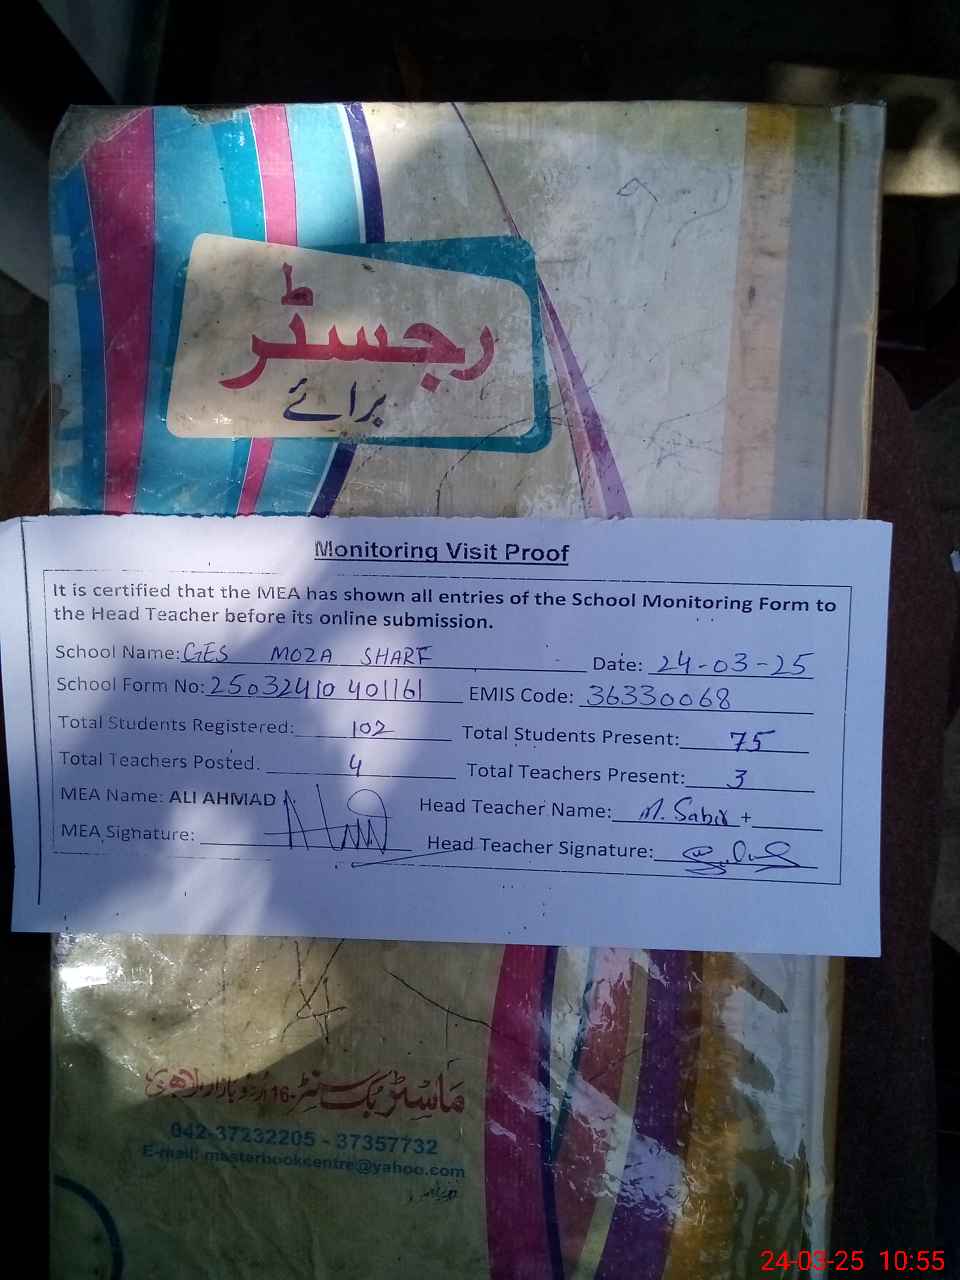 رجسٹر
برائے
Monitoring Visit Proof
It is certified that the MEA has shown all entries of the School Monitoring Form to
the Head Teacher before its online submission.
School Name: GES MOZA SHARF Date: 24-03-25
School Form No: 25032410 401161 EMIS Code: 36330068
Total Students Registered: 102 Total Students Present: 75
Total Teachers Posted: 4 Total Teachers Present: 3
MEA Name: ALI AHMAD Head Teacher Name: M. Sabir +
MEA Signature: Head Teacher Signature:
ماسٹر بک سنٹر 16-اردو بازار لاہور
042-37232205 - 37357732
E-mail: masterbookcentre@yahoo.com
24-03-25 10:55